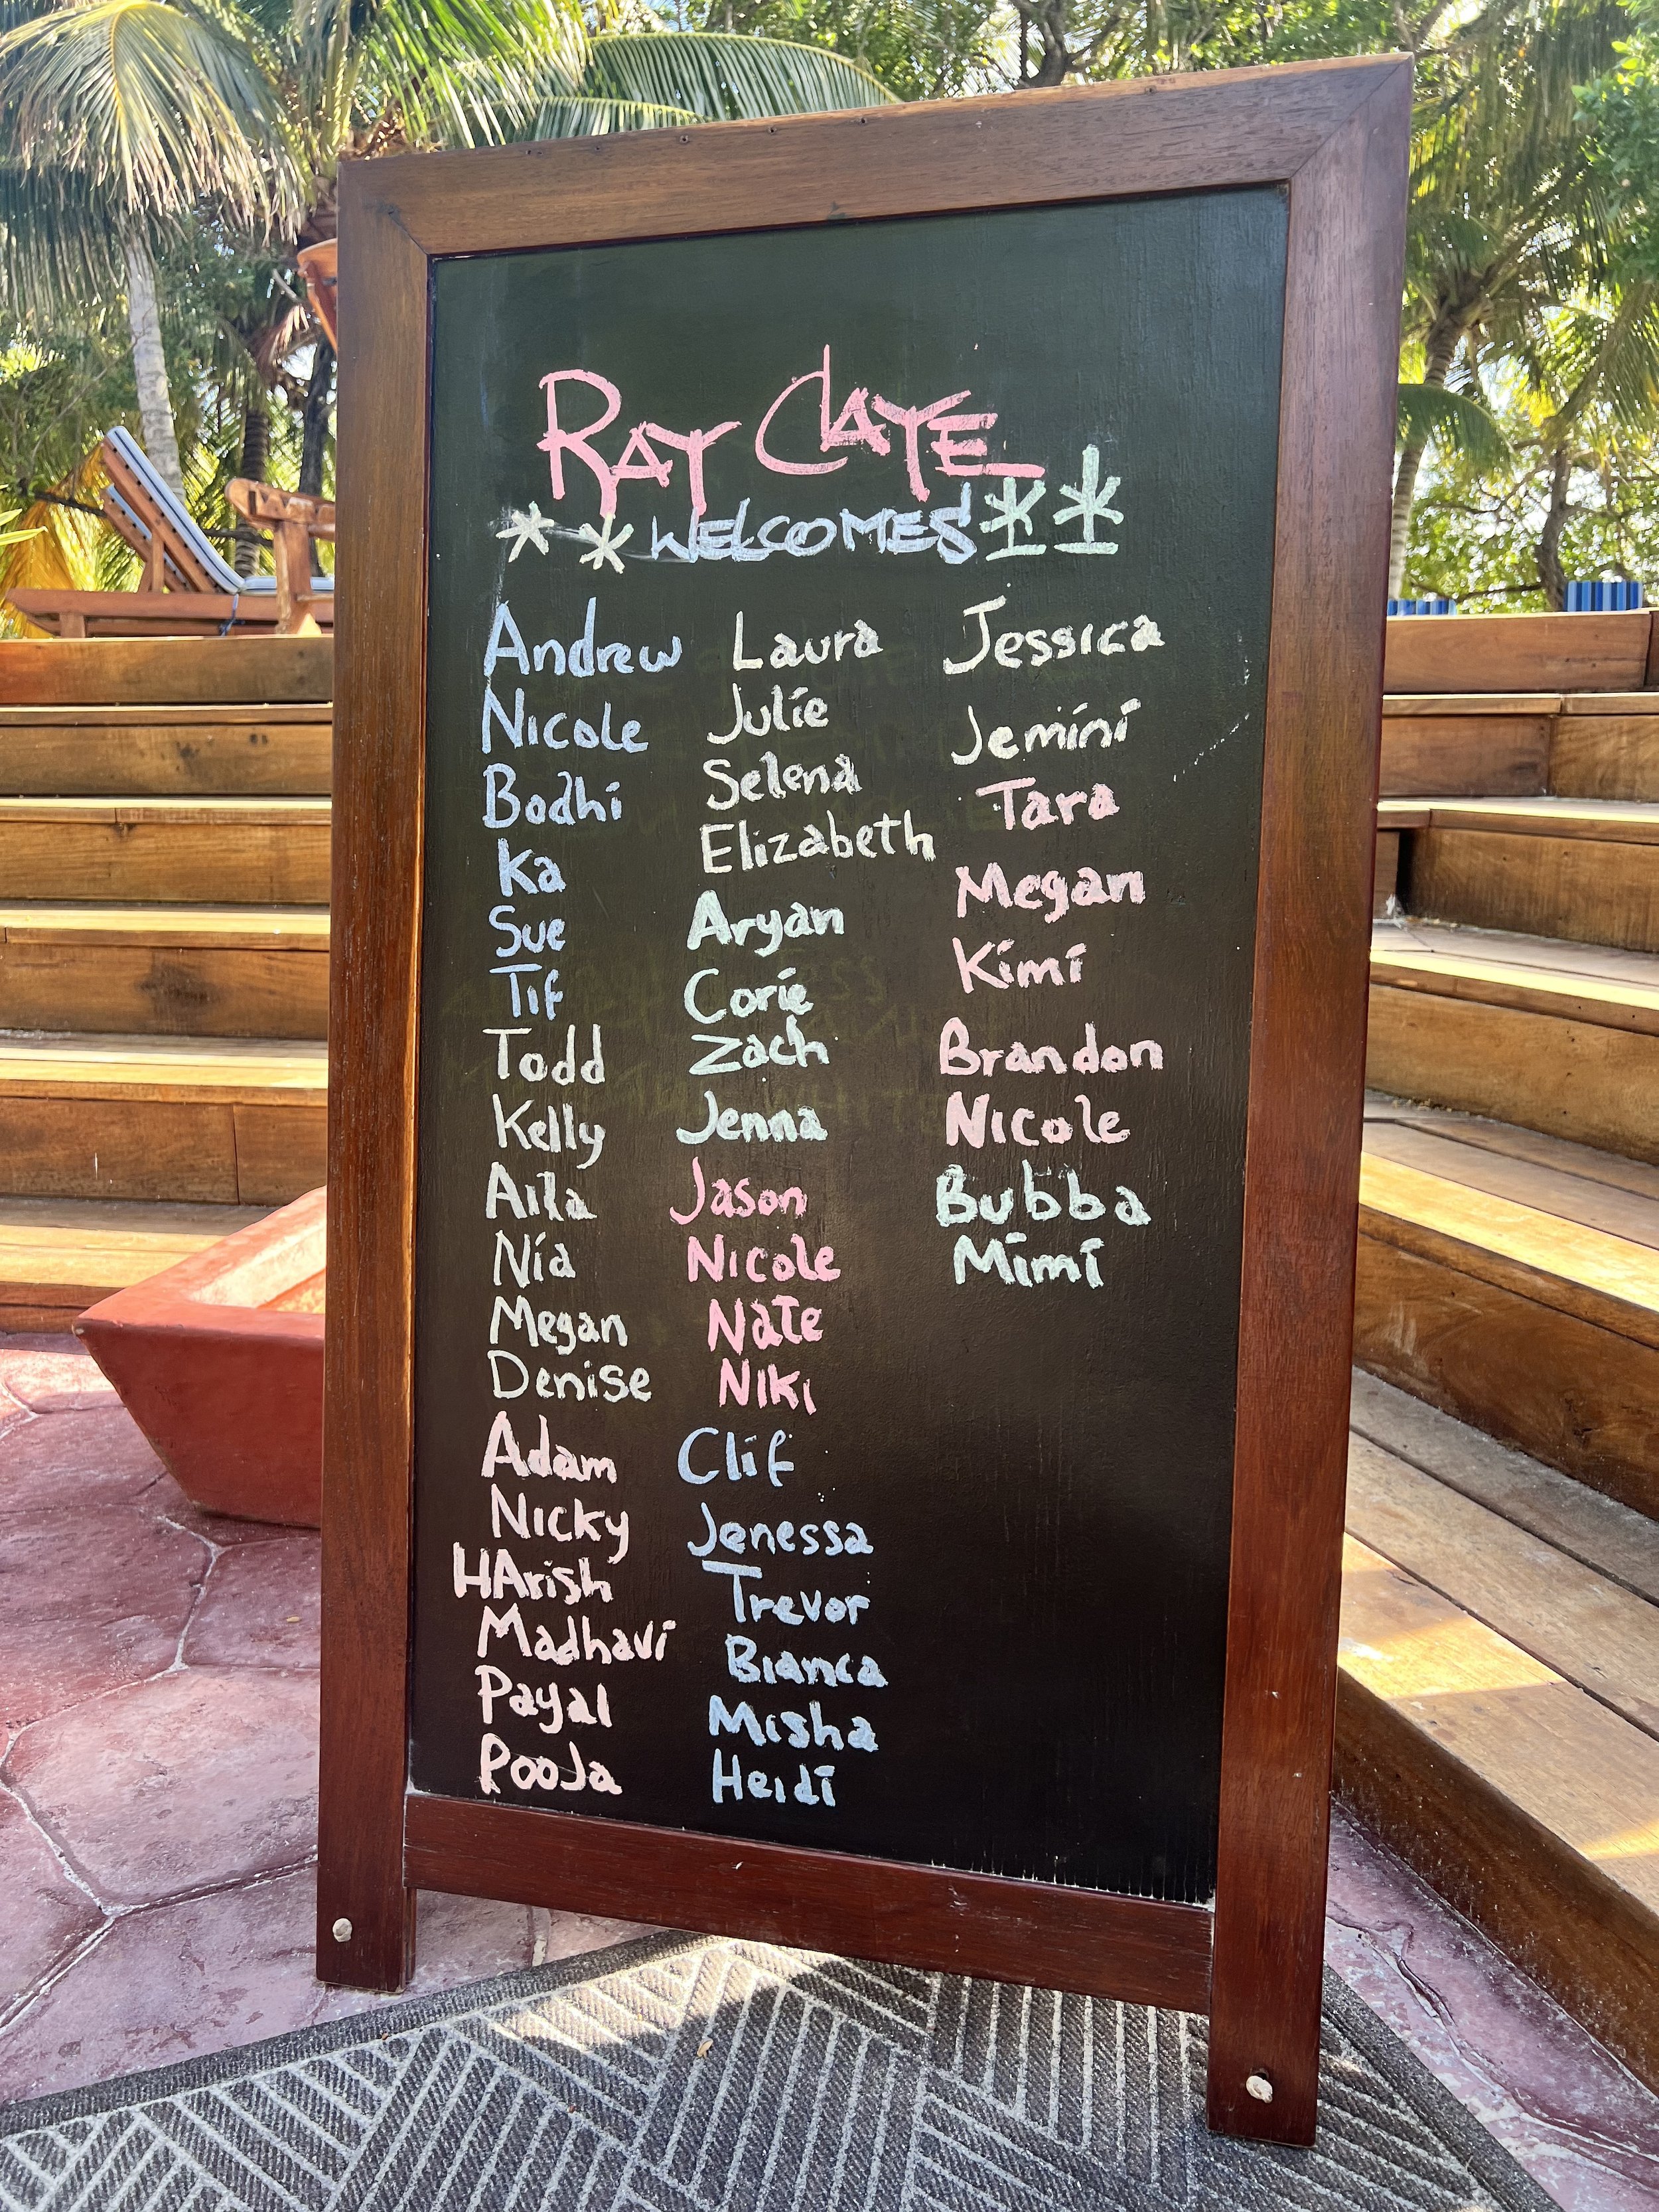 RAY CAYE
**WELCOMES**
Andrew
Nicole
Bodhi
Ka
Sue
Tif
Todd
Kelly
Aila
Nia
Megan
Denise
Adam
Nicky
HArish
Madhavi
Payal
PooJa
Laura
Julie
Selena
Elizabeth
Aryan
Corie
Zach
Jenna
Jason
Nicole
Nate
Niki
Clif
Jenessa
Trevor
Bianca
Misha
Heidi
Jessica
Jemini
Tara
Megan
Kimi
Brandon
Nicole
Bubba
Mimi